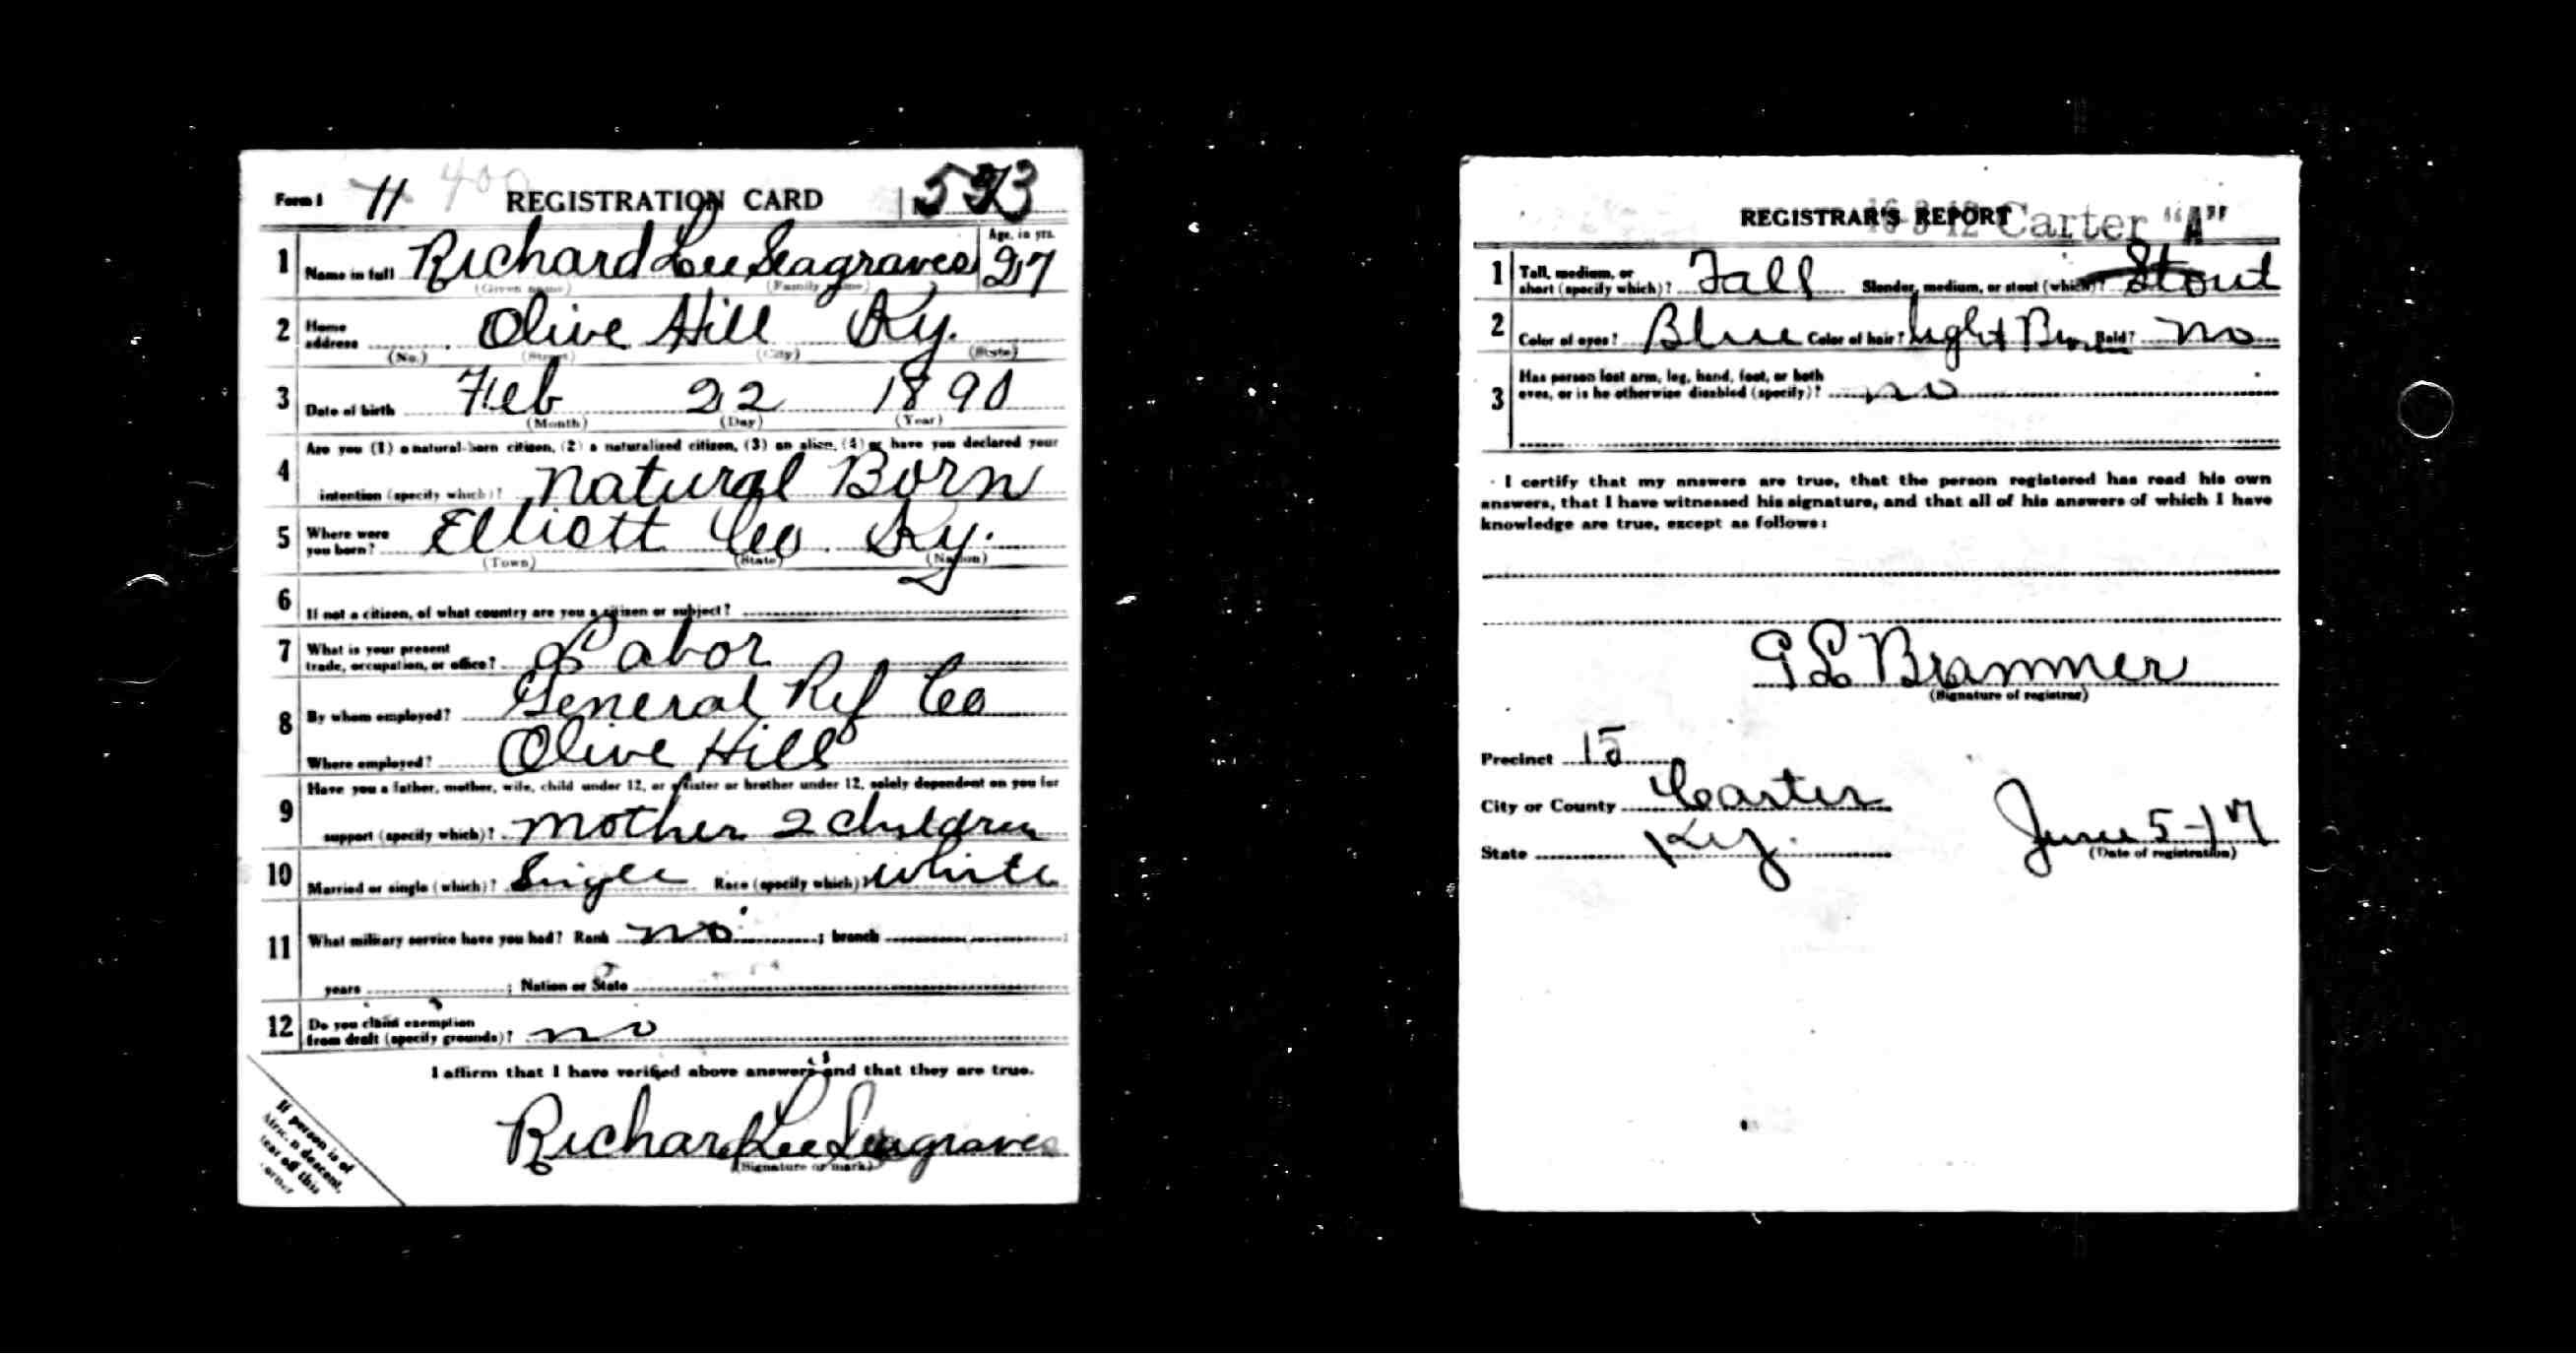 Form 1 11 400 REGISTRATION CARD
1 Name in full Richard Lee Seagraves Age, in yrs. 27
(Given name) (Family name)
2 Home address Olive Hill Ky.
(No.) (Street) (City) (State)
3 Date of birth Feb 22 1890
(Month) (Day) (Year)
4 Are you (1) a natural-born citizen, (2) a naturalized citizen, (3) an alien, (4) or have you declared your
intention (specify which)? Natural Born
5 Where were you born? Elliott Co. Ky.
(Town) (State) (Nation)
6 If not a citizen, of what country are you a citizen or subject?
7 What is your present
trade, occupation, or office? Labor
8 By whom employed? General Ref Co
Where employed? Olive Hill
9 Have you a father, mother, wife, child under 12, or a sister or brother under 12, solely dependent on you for
support (specify which)? Mother 2 children
10 Married or single (which)? Single Race (specify which)? White
11 What military service have you had? Rank no ; branch
years ; Nation or State
12 Do you claim exemption
from draft (specify grounds)? no
I affirm that I have verified above answers and that they are true.
Richard Lee Seagraves
(Signature or mark)
If person is of
African descent,
tear off this
corner
REGISTRAR'S REPORT Carter "A"
1 Tall, medium, or
short (specify which)? Tall Slender, medium, or stout (which)? Stout
2 Color of eyes? Blue Color of hair? light Brown Bald? No
3 Has person lost arm, leg, hand, foot, or both
eyes, or is he otherwise disabled (specify)? no
I certify that my answers are true, that the person registered has read his own
answers, that I have witnessed his signature, and that all of his answers of which I have
knowledge are true, except as follows:
G L Brammer
(Signature of registrar)
Precinct 15
City or County Carter
State Ky. June 5-17
(Date of registration)